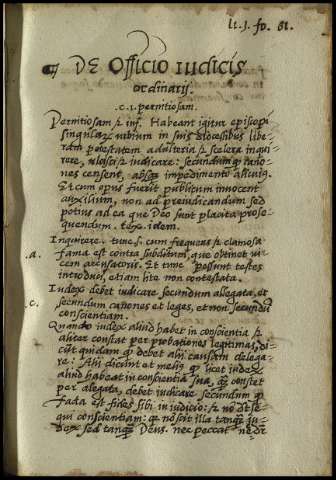 li. 1. fo. 81.
DE Officio iudicis
ordinarij.
.c. 1. permitiosam.
Permitiosam et inf. Habeant igitur episcopi
singularum urbium in suis diocesibus libe-
ram potestatem adulteria et scelera inqui-
rere, ulcisci et iudicare: secundum quod cano-
nes censent, absque impedimento alicuius.
Et cum opus fuerit publicum innocent
auxilium, non ad preiudicandum sed
potius ad ea que Deo sunt placita prose-
quendum. tex. idem.
Inquirere. tunc. s. cum frequens et clamosa
.a. fama est contra subditum, que obtinet vi-
cem accusatoris. Et tunc possunt testes
introduci, etiam lite non contestata.
Iudex debet iudicare secundum allegata, et
.c. secundum canones et leges, et non secundum
conscientiam.
Quando iudex aliud habet in conscientia et
aliter constat per probationes legitimas, di-
cunt quidam quod debet alii causam delega-
re: Alii dicunt et melius quod licet iudex
aliud habeat in conscientia sua, que constet
per alegata, debet iudicare secundum quod
facta est fides sibi in iudicio: et non debet se-
qui conscientiam: que noscit illa tanquam iu-
dex sed tanquam Deus. nec peccat